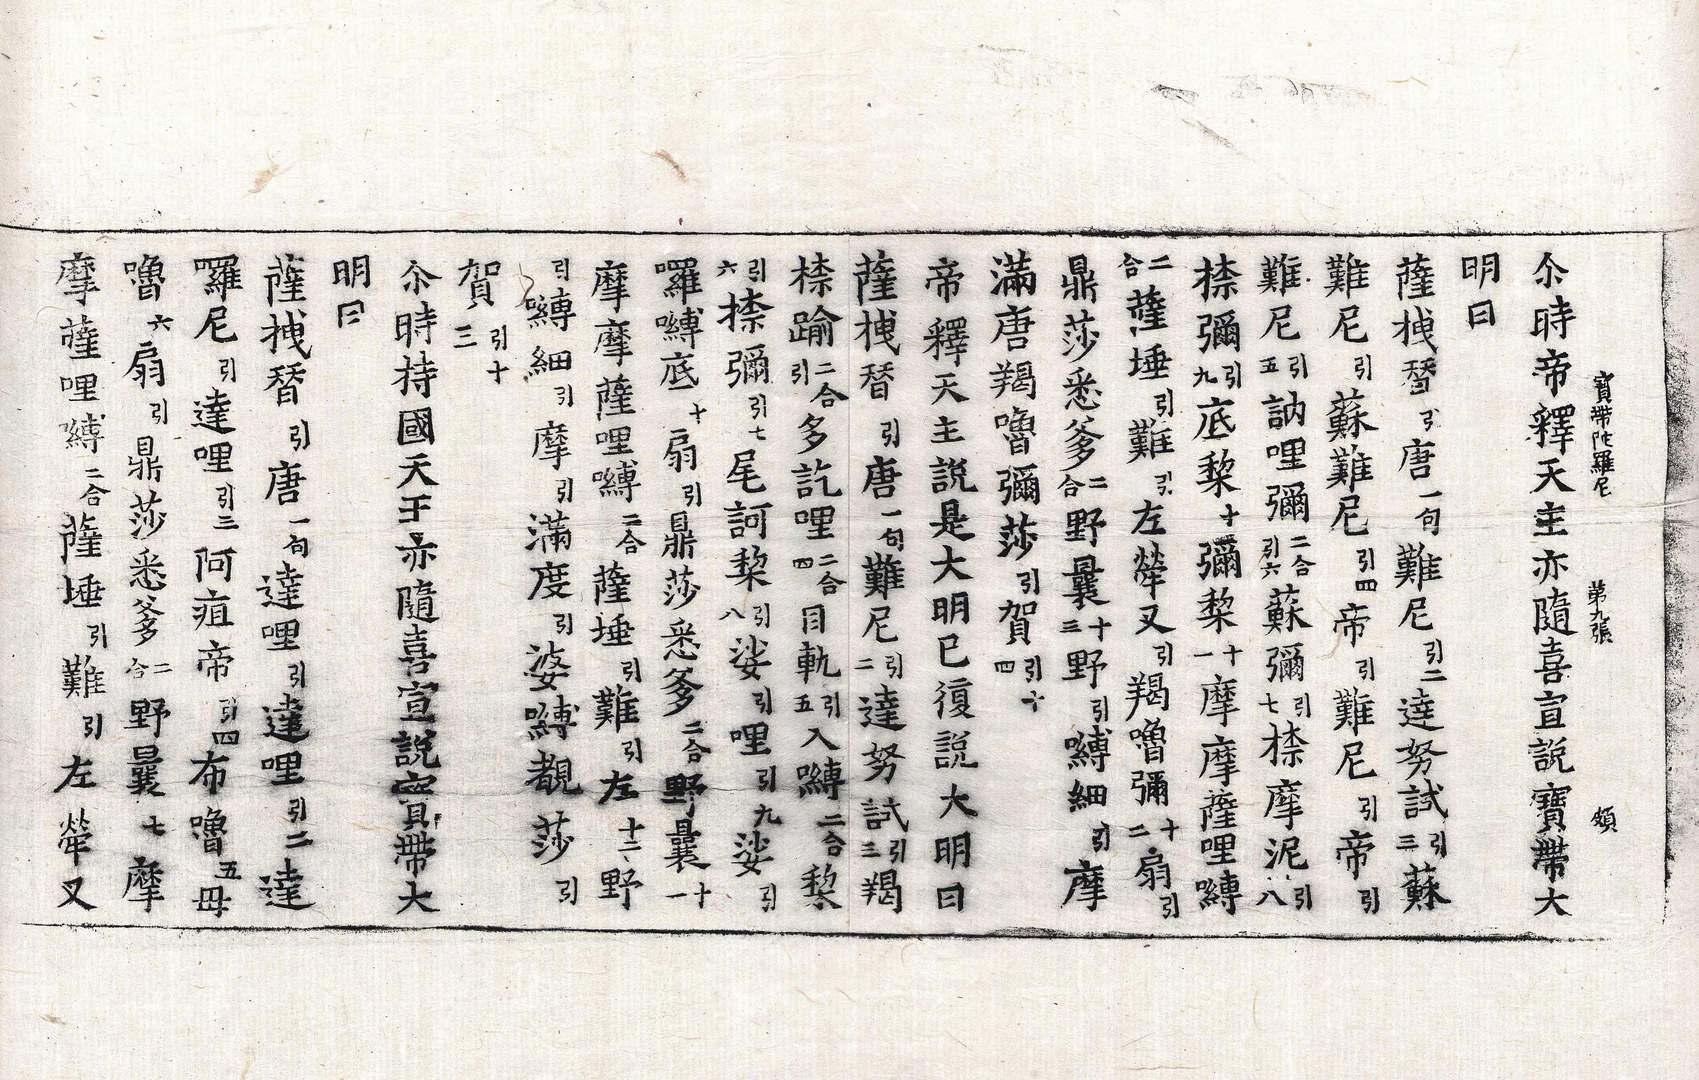 寶帶陁羅尼 第九張 頞
尒時帝釋天主亦隨喜宣說寶帶大
明曰
薩拽朁引唐一句難尼引二達努試引三蘇
難尼引蘇難尼引四帝引難尼引帝引
難尼引五訥哩彌二合引六蘇彌引七㮈摩泥引八
㮈彌引九底犂十彌犂十一摩摩薩哩嚩
二合薩埵引難引左犖叉引羯嚕彌十二扇引
鼎莎悉爹二合野曩十三野引嚩細引摩
滿唐羯嚕彌莎引賀引十四
帝釋天主說是大明已復說大明曰
薩拽朁引唐一句難尼引二達努試引三羯
㮈踰二合引多訖哩二合四目軌引五入嚩二合犂
引六㮈彌引七尾訶犂引八娑引哩引九娑引
囉嚩底十扇引鼎莎悉爹二合野曩十一
摩摩薩哩嚩二合薩埵引難引左十二野
引嚩細引摩引滿度引婆嚩覩莎引
賀引十三
尒時持國天王亦隨喜宣說寶帶大
明曰
薩拽朁引唐一句達哩引達哩引二達
囉尼引達哩引三阿疽帝引四布嚕五毋
嚕六扇引鼎莎悉爹二合野曩七摩
摩薩哩嚩二合薩埵引難引左犖叉